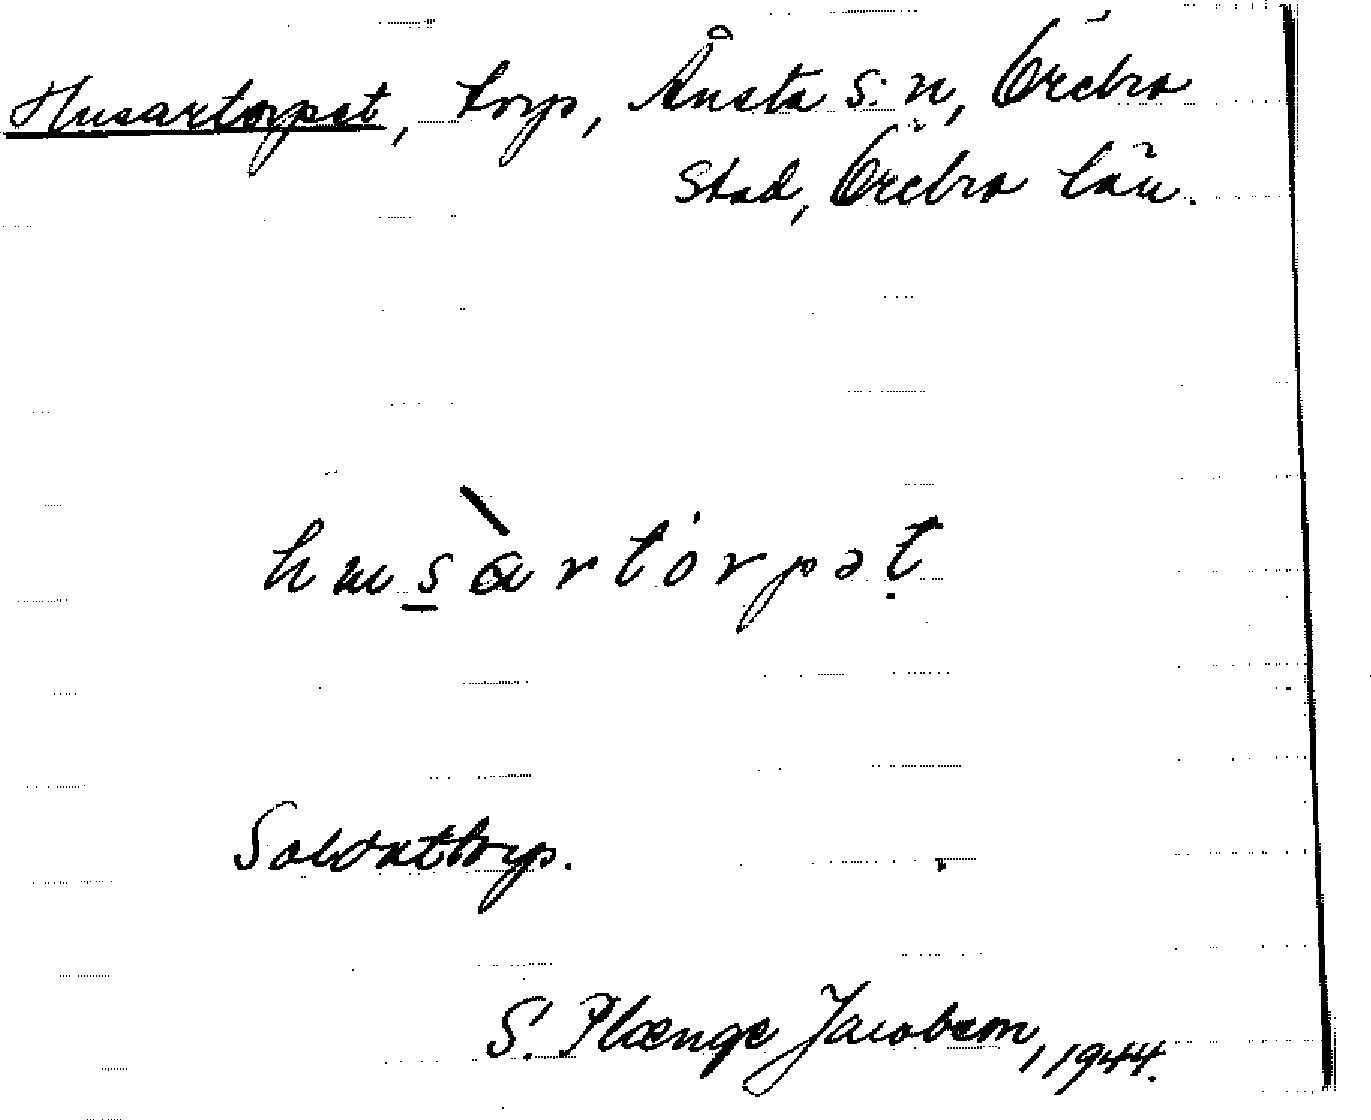 Husartorpet, torp, Ånsta s:n, Örebro
stad, Örebro län.
husàrtórpət
Soldattorp.
S. Plænge Jacobson, 1944.